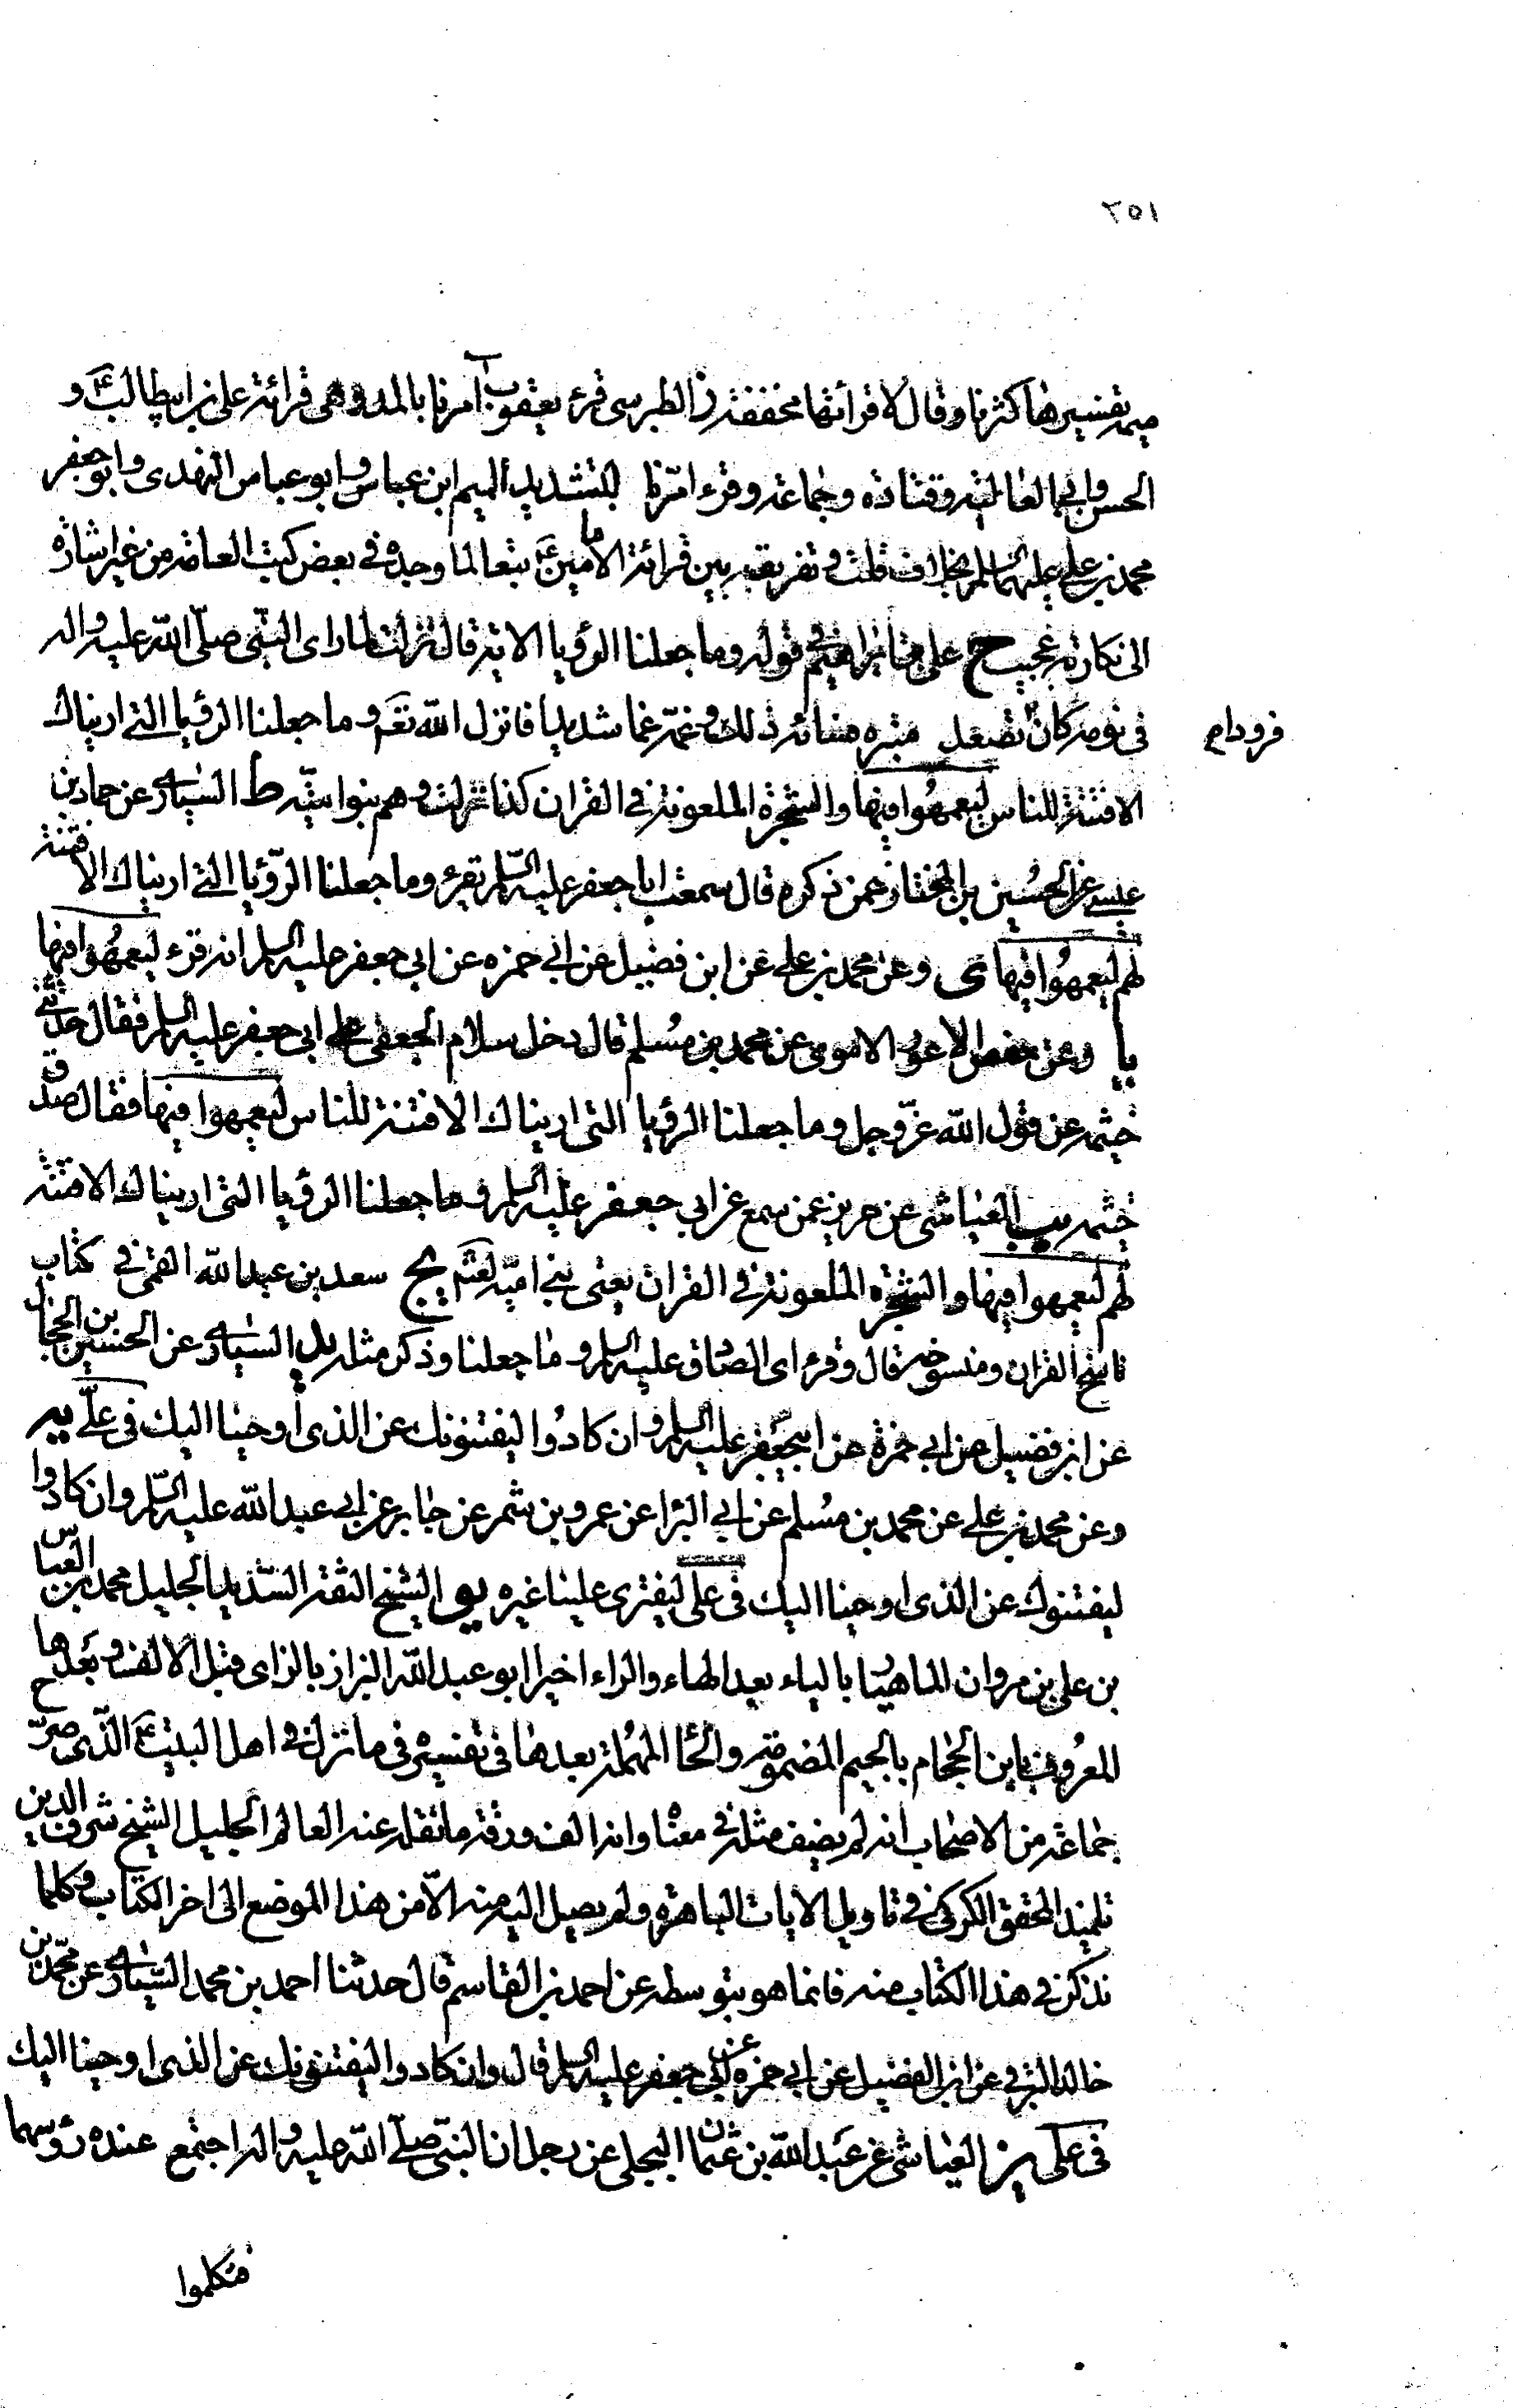 ٢٥١
ميمه تفسيرها كثرنا وقال لا قرأتها مخففة ز الطبرسى قرء يعقوب امرنا بالمد وهى قرائة على بن ابيطالب ع و
الحسن وابى العالية وقتادة وجماعة وقرء امّرنا بالتشديد الميم ابن عباس وابو عباس النهدى وابو جعفر
محمد بن على عليهما السلم بخلاف قلت وتفريقه بين قرائة الامامين ع تبعا لما وجده فى بعض كتب العامة من غير اشارة
الى نكارته عجيب ح على بن ابراهيم فى قوله وما جعلنا الرؤيا الاية قال نزلت لما راى النبى صلّى الله عليه واله
فى نومه كانّ تصعد منبره فساءه ذلك وغمّه غما شديدا فانزل الله تعَ وما جعلنا الرؤيا التى اريناك
قرودا م
الا فتنة للناس ليعمهوا فيها والشجرة الملعونة فى القران كذا نزلت وهم بنوا اميّة ط السيارى عن حماد بن
عيسى عن الحسين بن المختار عمن ذكره قال سمعت ابا جعفر عليه السّلم يقرء وما جعلنا الرّؤيا التى اريناك الا فتنة
لهم ليعمهُوا فيها ى وعن محمد بن على عن ابن فضيل عن ابى حمزه عن ابى جعفر عليه السلم انه قرء ليعمهُوا فيها
يا وعن بعض الاموى عن محمد بن مُسلم قال دخل سلام الجعفى على ابى جعفر عليه السلم فقال حدثنى
خيثمه عن قول الله عزّ وجل وما جعلنا الرؤيا التى اريناك الا فتنة للناس ليعمهوا فيها فقال صدق
خيثمه يب العياشى عن حريز عمن سمع عن ابى جعفر عليه السلم وما جعلنا الرؤيا التى اريناك الا فتنة
لهم ليعمهوا فيها والشجرة الملعونة فى القران يعنى بنى اميّة لعنهم يج سعد بن عبد الله القمى فى كتاب
ناسخ القران ومنسوخه قال وقرء اى الصادق عليه السلم وما جعلنا وذكر مثله يد السيارى عن الحسين بن الحجال
عن ابن فضيل عن ابى حمزة عن ابيجعفر عليه السلم وان كادُوا ليفتنونك عن الذى أوحينا اليك فى علّى يه
وعن محمد بن على عن محمد بن مُسلم عن ابى البزا عن عمرو بن شمر عن جابر عن ابى عبد الله عليه السّلم وان كادوا
ليفتنوك عن الذى اوحينا اليك فى على ليفترى علينا غيره يو الشيخ الثقة السّديد الجليل محمد بن العباس
بن على بن مروان الماهيار بالياء بعد الهاء والراء اخيرا ابو عبد الله البزاز بالزاى قبل الالف وبعدها
المعروف بابن الجحام بالجيم المضمومة والحا المهملة بعدها فى تفسيره فى ما نزل فى اهل البيت ع الذّى صرّح
جماعة من الاصحاب انه لم يصنف مثله فى معناه وانه الف ورقة ما نقله عنه العالم الجليل الشيخ شرف الدين
تلميذ المحقق الكركى فى تاويل الايات الباهرة ولم يصل اليه منه الاّ من هذا الموضع الى اخر الكتاب وكلما
نذكره فى هذا الكتاب منه فانما هو بتوسطه عن احمد بن القاسم قال حدثنا احمد بن محمد السّيارى عن محمّد بن
خالد البرقى عن ابن الفضيل عن ابى حمزه عن ابى جعفر عليه السلم قال وان كادوا ليفتنونك عن الذى اوحينا اليك
فى على يز العياشى عن عبد الله بن عثمان البجلى عن رجل ان النبّى صلّى الله عليه واله اجتمع عنده رؤسهما
فتكلموا